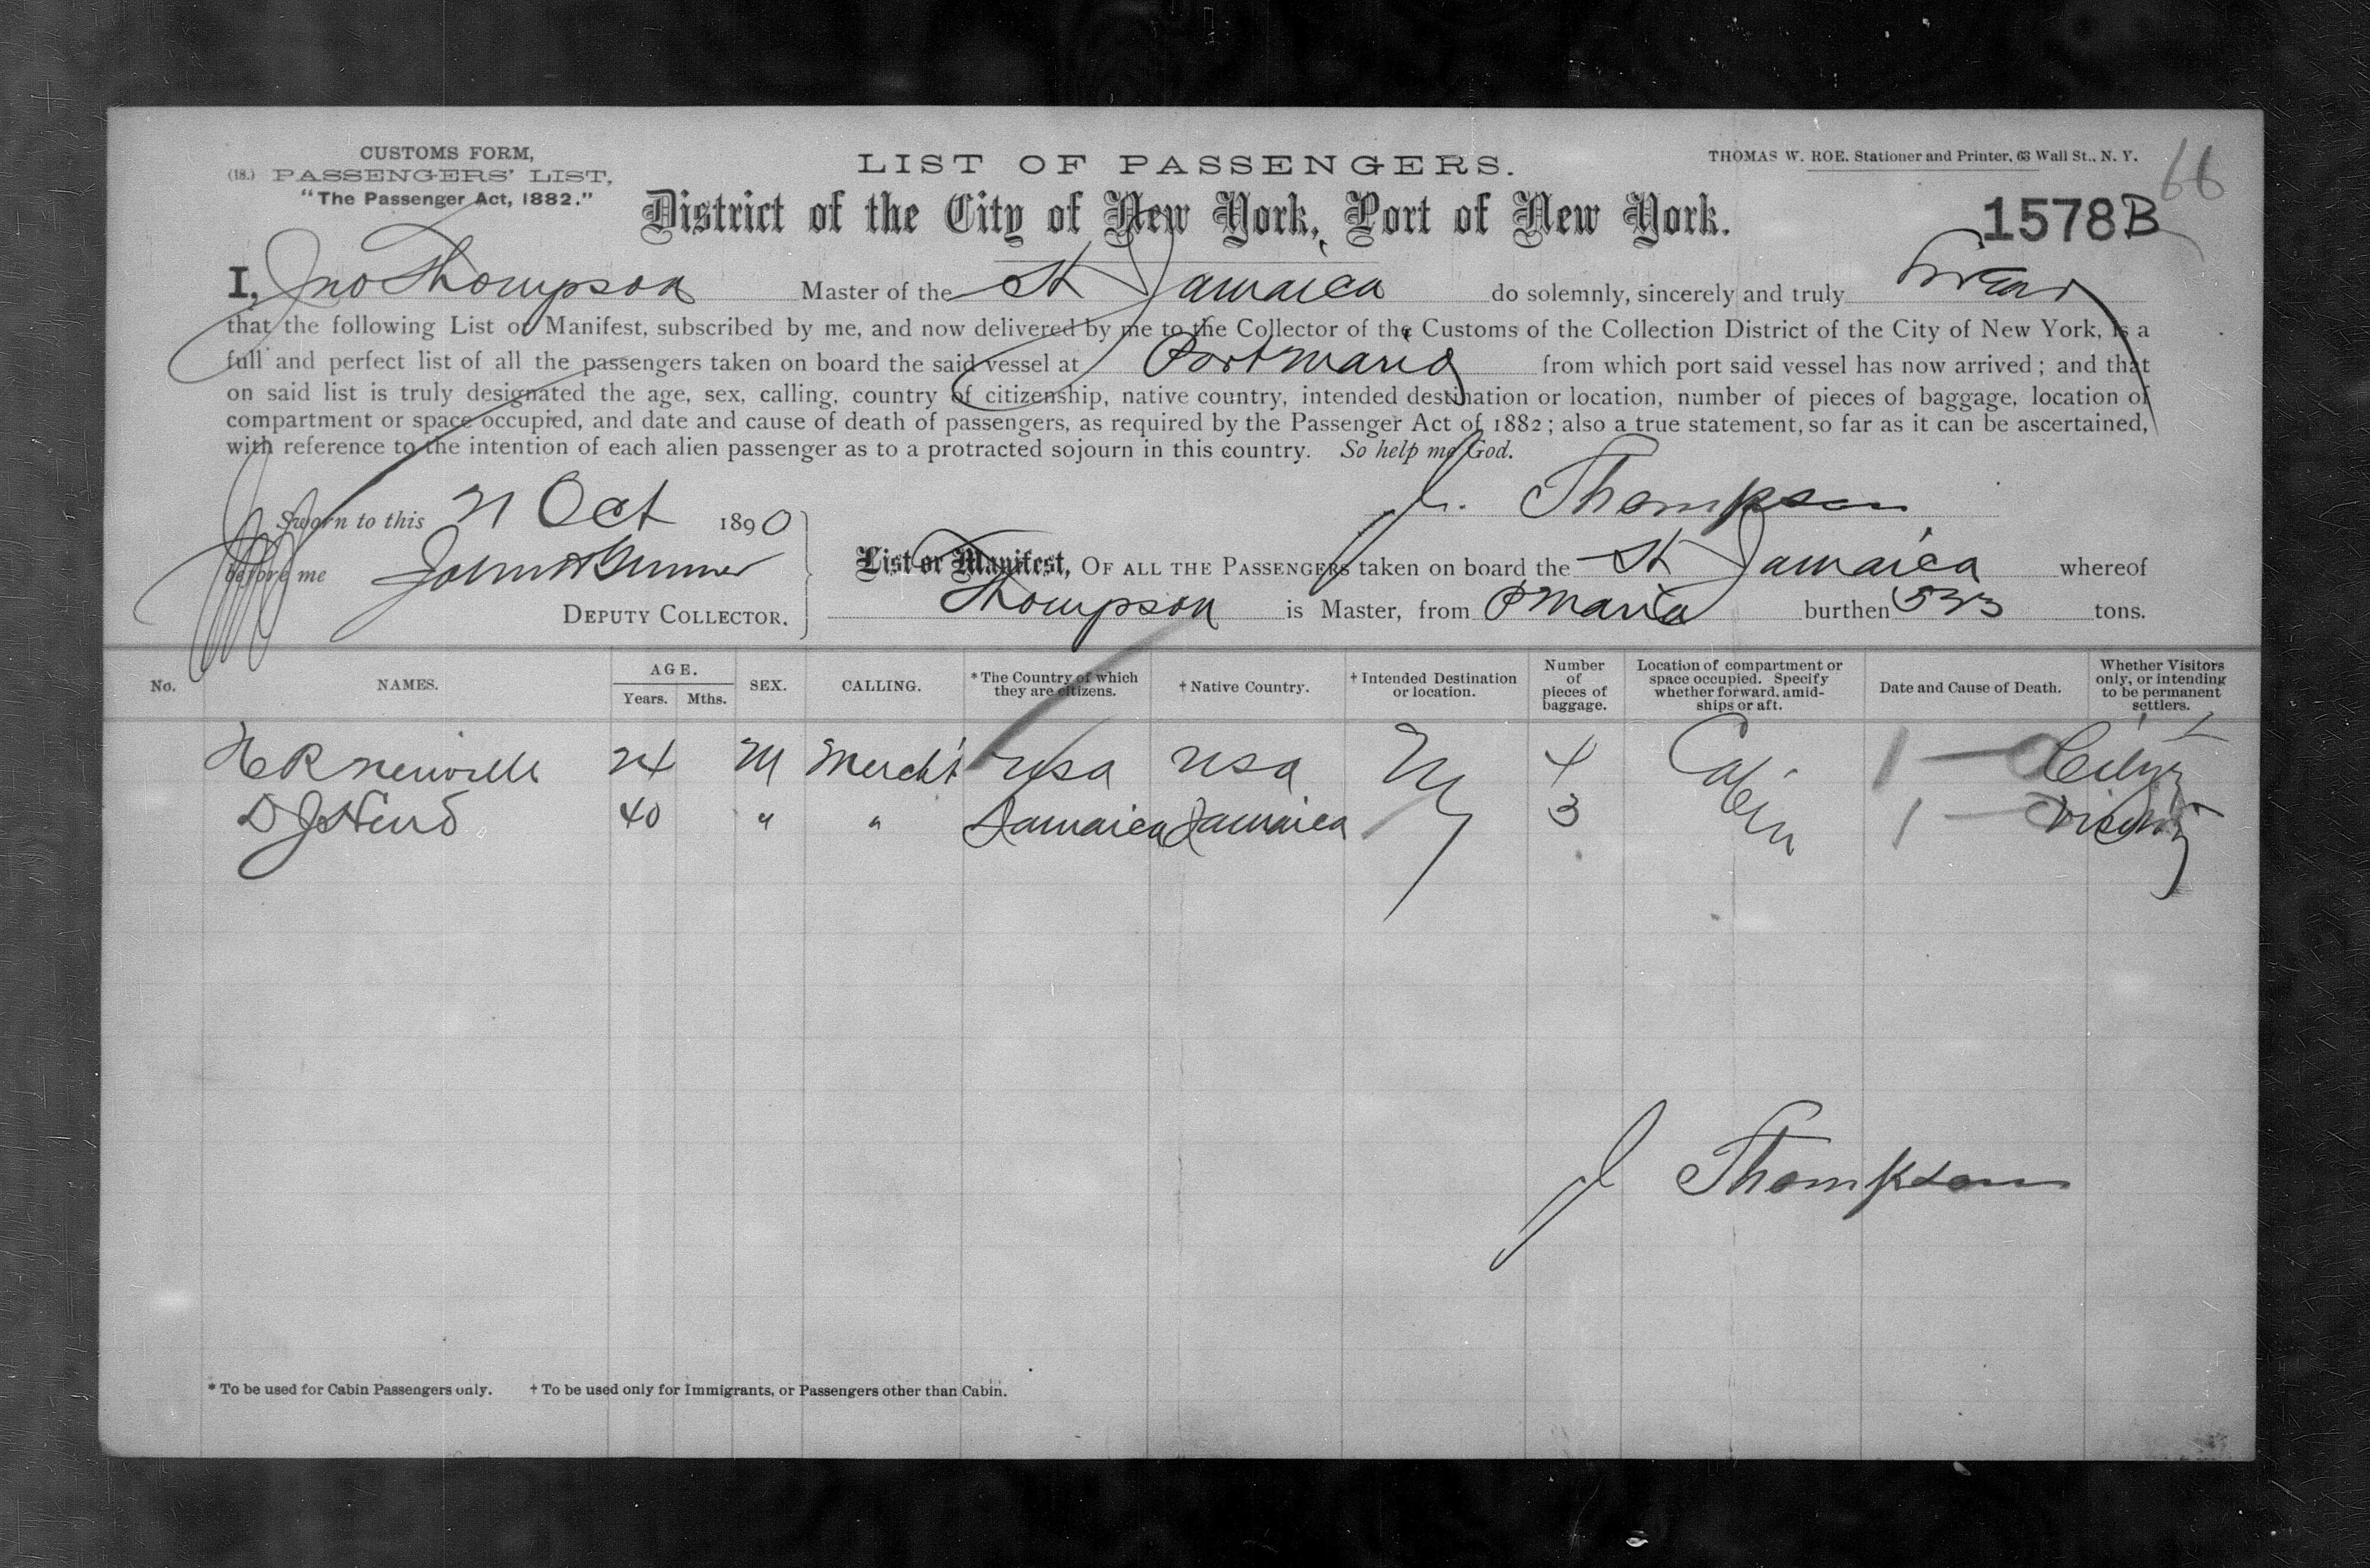 CUSTOMS FORM,
(18.) PASSENGERS' LIST,
"The Passenger Act, 1882."
LIST OF PASSENGERS.
THOMAS W. ROE. Stationer and Printer, 63 Wall St., N. Y.
66
District of the City of New York, Port of New York.
1578B
I, Jno Thompson Master of the St Jamaica do solemnly, sincerely and truly swear
that the following List or Manifest, subscribed by me, and now delivered by me to the Collector of the Customs of the Collection District of the City of New York, is a
full and perfect list of all the passengers taken on board the said vessel at Port Maria from which port said vessel has now arrived ; and that
on said list is truly designated the age, sex, calling, country of citizenship, native country, intended destination or location, number of pieces of baggage, location of
compartment or space occupied, and date and cause of death of passengers, as required by the Passenger Act of 1882 ; also a true statement, so far as it can be ascertained,
with reference to the intention of each alien passenger as to a protracted sojourn in this country. So help me God.
J. Thompson
Sworn to this 21 Oct 1890
before me
DEPUTY COLLECTOR.
List or Manifest, OF ALL THE PASSENGERS taken on board the St Jamaica whereof
Thompson is Master, from P Maria burthen tons.
No. NAMES. AGE. Years. Mths. SEX. CALLING. * The Country of which they are citizens. † Native Country. † Intended Destination or location. Number of pieces of baggage. Location of compartment or space occupied. Specify whether forward, amidships or aft. Date and Cause of Death. Whether Visitors only, or intending to be permanent settlers.
H R 24 M Mercht usa usa Ny 4 Cabin
D J 40 " " Jamaica Jamaica 3
J Thompson
* To be used for Cabin Passengers only. † To be used only for Immigrants, or Passengers other than Cabin.